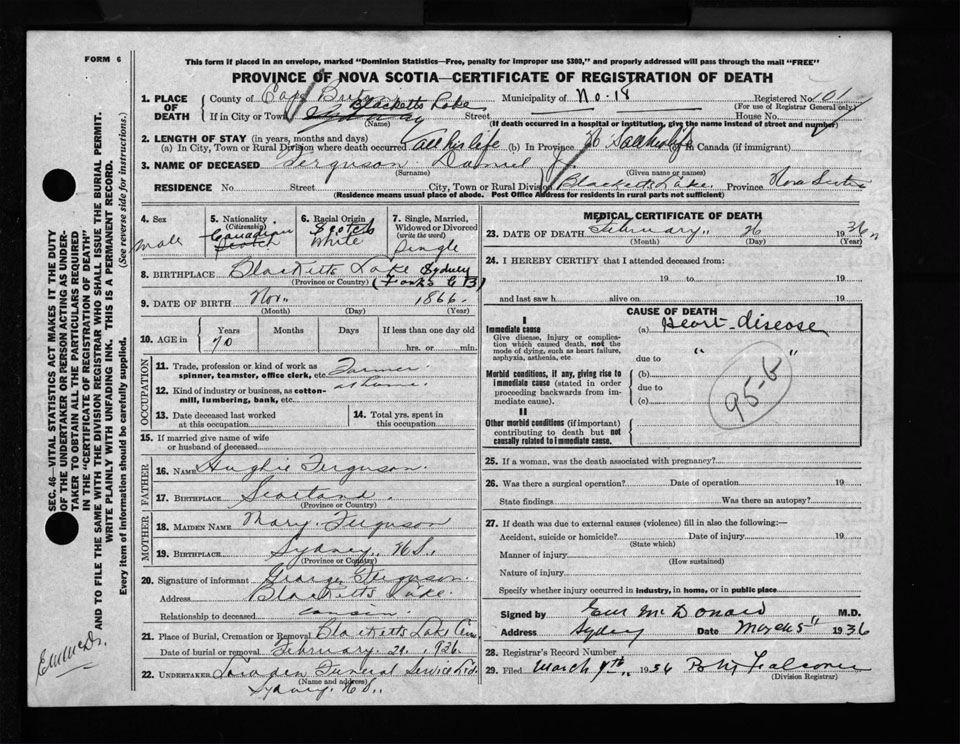 FORM 6
This form if placed in an envelope, marked "Dominion Statistics—Free, penalty for improper use $300," and properly addressed will pass through the mail "FREE"
PROVINCE OF NOVA SCOTIA—CERTIFICATE OF REGISTRATION OF DEATH
1. PLACE OF DEATH
County of Cape Breton Municipality of No. 18 Registered No. 101
(For use of Registrar General only)
If in City or Town Sydney Blacketts Lake Street House No.
(Name) (If death occurred in a hospital or institution, give the name instead of street and number)
2. LENGTH OF STAY (in years, months and days)
(a) In City, Town or Rural Division where death occurred all his life (b) In Province all his life In Canada (if immigrant)
3. NAME OF DECEASED Ferguson Daniel
(Surname) (Given name or names)
RESIDENCE No. Street City, Town or Rural Division Blacketts Lake Province Nova Scotia
(Residence means usual place of abode. Post Office Address for residents in rural parts not sufficient)
4. Sex
male
5. Nationality (Citizenship)
Canadian
Scotch
6. Racial Origin
Scotch
White
7. Single, Married, Widowed or Divorced (write the word)
Single
8. BIRTHPLACE Blacketts Lake Sydney
(Province or Country) (Forks C B)
9. DATE OF BIRTH Nov. 1866
(Month) (Day) (Year)
10. AGE in
Years Months Days If less than one day old
70 hrs. or min.
OCCUPATION
11. Trade, profession or kind of work as spinner, teamster, office clerk, etc. Farmer
12. Kind of industry or business, as cotton-mill, lumbering, bank, etc. at home
13. Date deceased last worked at this occupation
14. Total yrs. spent in this occupation
15. If married give name of wife or husband of deceased
FATHER
16. NAME Hughie Ferguson
17. BIRTHPLACE Scotland
(Province or Country)
MOTHER
18. MAIDEN NAME Mary Ferguson
19. BIRTHPLACE Sydney, N.S.
(Province or Country)
20. Signature of informant George Ferguson
Address Blacketts Lake
Relationship to deceased cousin
21. Place of Burial, Cremation or Removal Blacketts Lake Cem.
Date of burial or removal February 29, 1936.
22. UNDERTAKER Funeral Service Ltd.
(Name and address)
Sydney, N.S.
MEDICAL CERTIFICATE OF DEATH
23. DATE OF DEATH February 26 1936
(Month) (Day) (Year)
24. I HEREBY CERTIFY that I attended deceased from:
19 to 19
and last saw h alive on 19
CAUSE OF DEATH
I
Immediate cause
Give disease, injury or complication which caused death, not the mode of dying, such as heart failure, asphyxia, asthenia, etc.
(a) Heart disease
due to " "
Morbid conditions, if any, giving rise to immediate cause (stated in order proceeding backwards from immediate cause).
(b)
due to
(c)
95-b
II
Other morbid conditions (if important) contributing to death but not causally related to immediate cause.
25. If a woman, was the death associated with pregnancy?
26. Was there a surgical operation? Date of operation 19
State findings Was there an autopsy?
27. If death was due to external causes (violence) fill in also the following:—
Accident, suicide or homicide? Date of injury 19
(State which)
Manner of injury
(How sustained)
Nature of injury
Specify whether injury occurred in industry, in home, or in public place
Signed by McDonald M.D.
Address Sydney Date March 5" 1936
28. Registrar's Record Number
29. Filed March 9th 1936 Falconer
(Division Registrar)
SEC. 46—VITAL STATISTICS ACT MAKES IT THE DUTY
OF THE UNDERTAKER OR PERSON ACTING AS UNDERTAKER
TO OBTAIN ALL THE PARTICULARS REQUIRED
IN THE "CERTIFICATE OF REGISTRATION OF DEATH"
AND TO FILE THE SAME WITH THE DIVISION REGISTRAR WHO SHALL ISSUE THE BURIAL PERMIT.
WRITE PLAINLY WITH UNFADING INK. THIS IS A PERMANENT RECORD.
Every item of information should be carefully supplied. (See reverse side for instructions.)